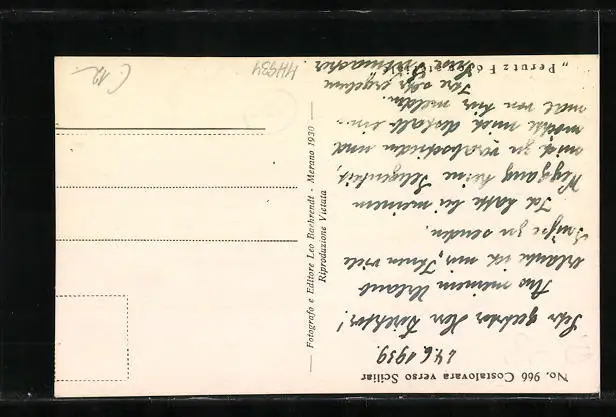 No. 966 Costalovara verso Sciliar
24.6.1939.
Sehr geehrter Herr Direktor!
Aus meinem Urlaub
erlaube ich mir, Ihnen viele
Grüße zu senden.
Ich hatte bei meinem
Weggang keine Gelegenheit,
mich zu verabschieden und
möchte mich deshalb ein-
mal von hier melden.
Ihre sehr ergebene
„Perutz
Fotografo e Editore Leo Baehrendt - Merano 1930
Riproduzione Vietata
HH934
C 12.-